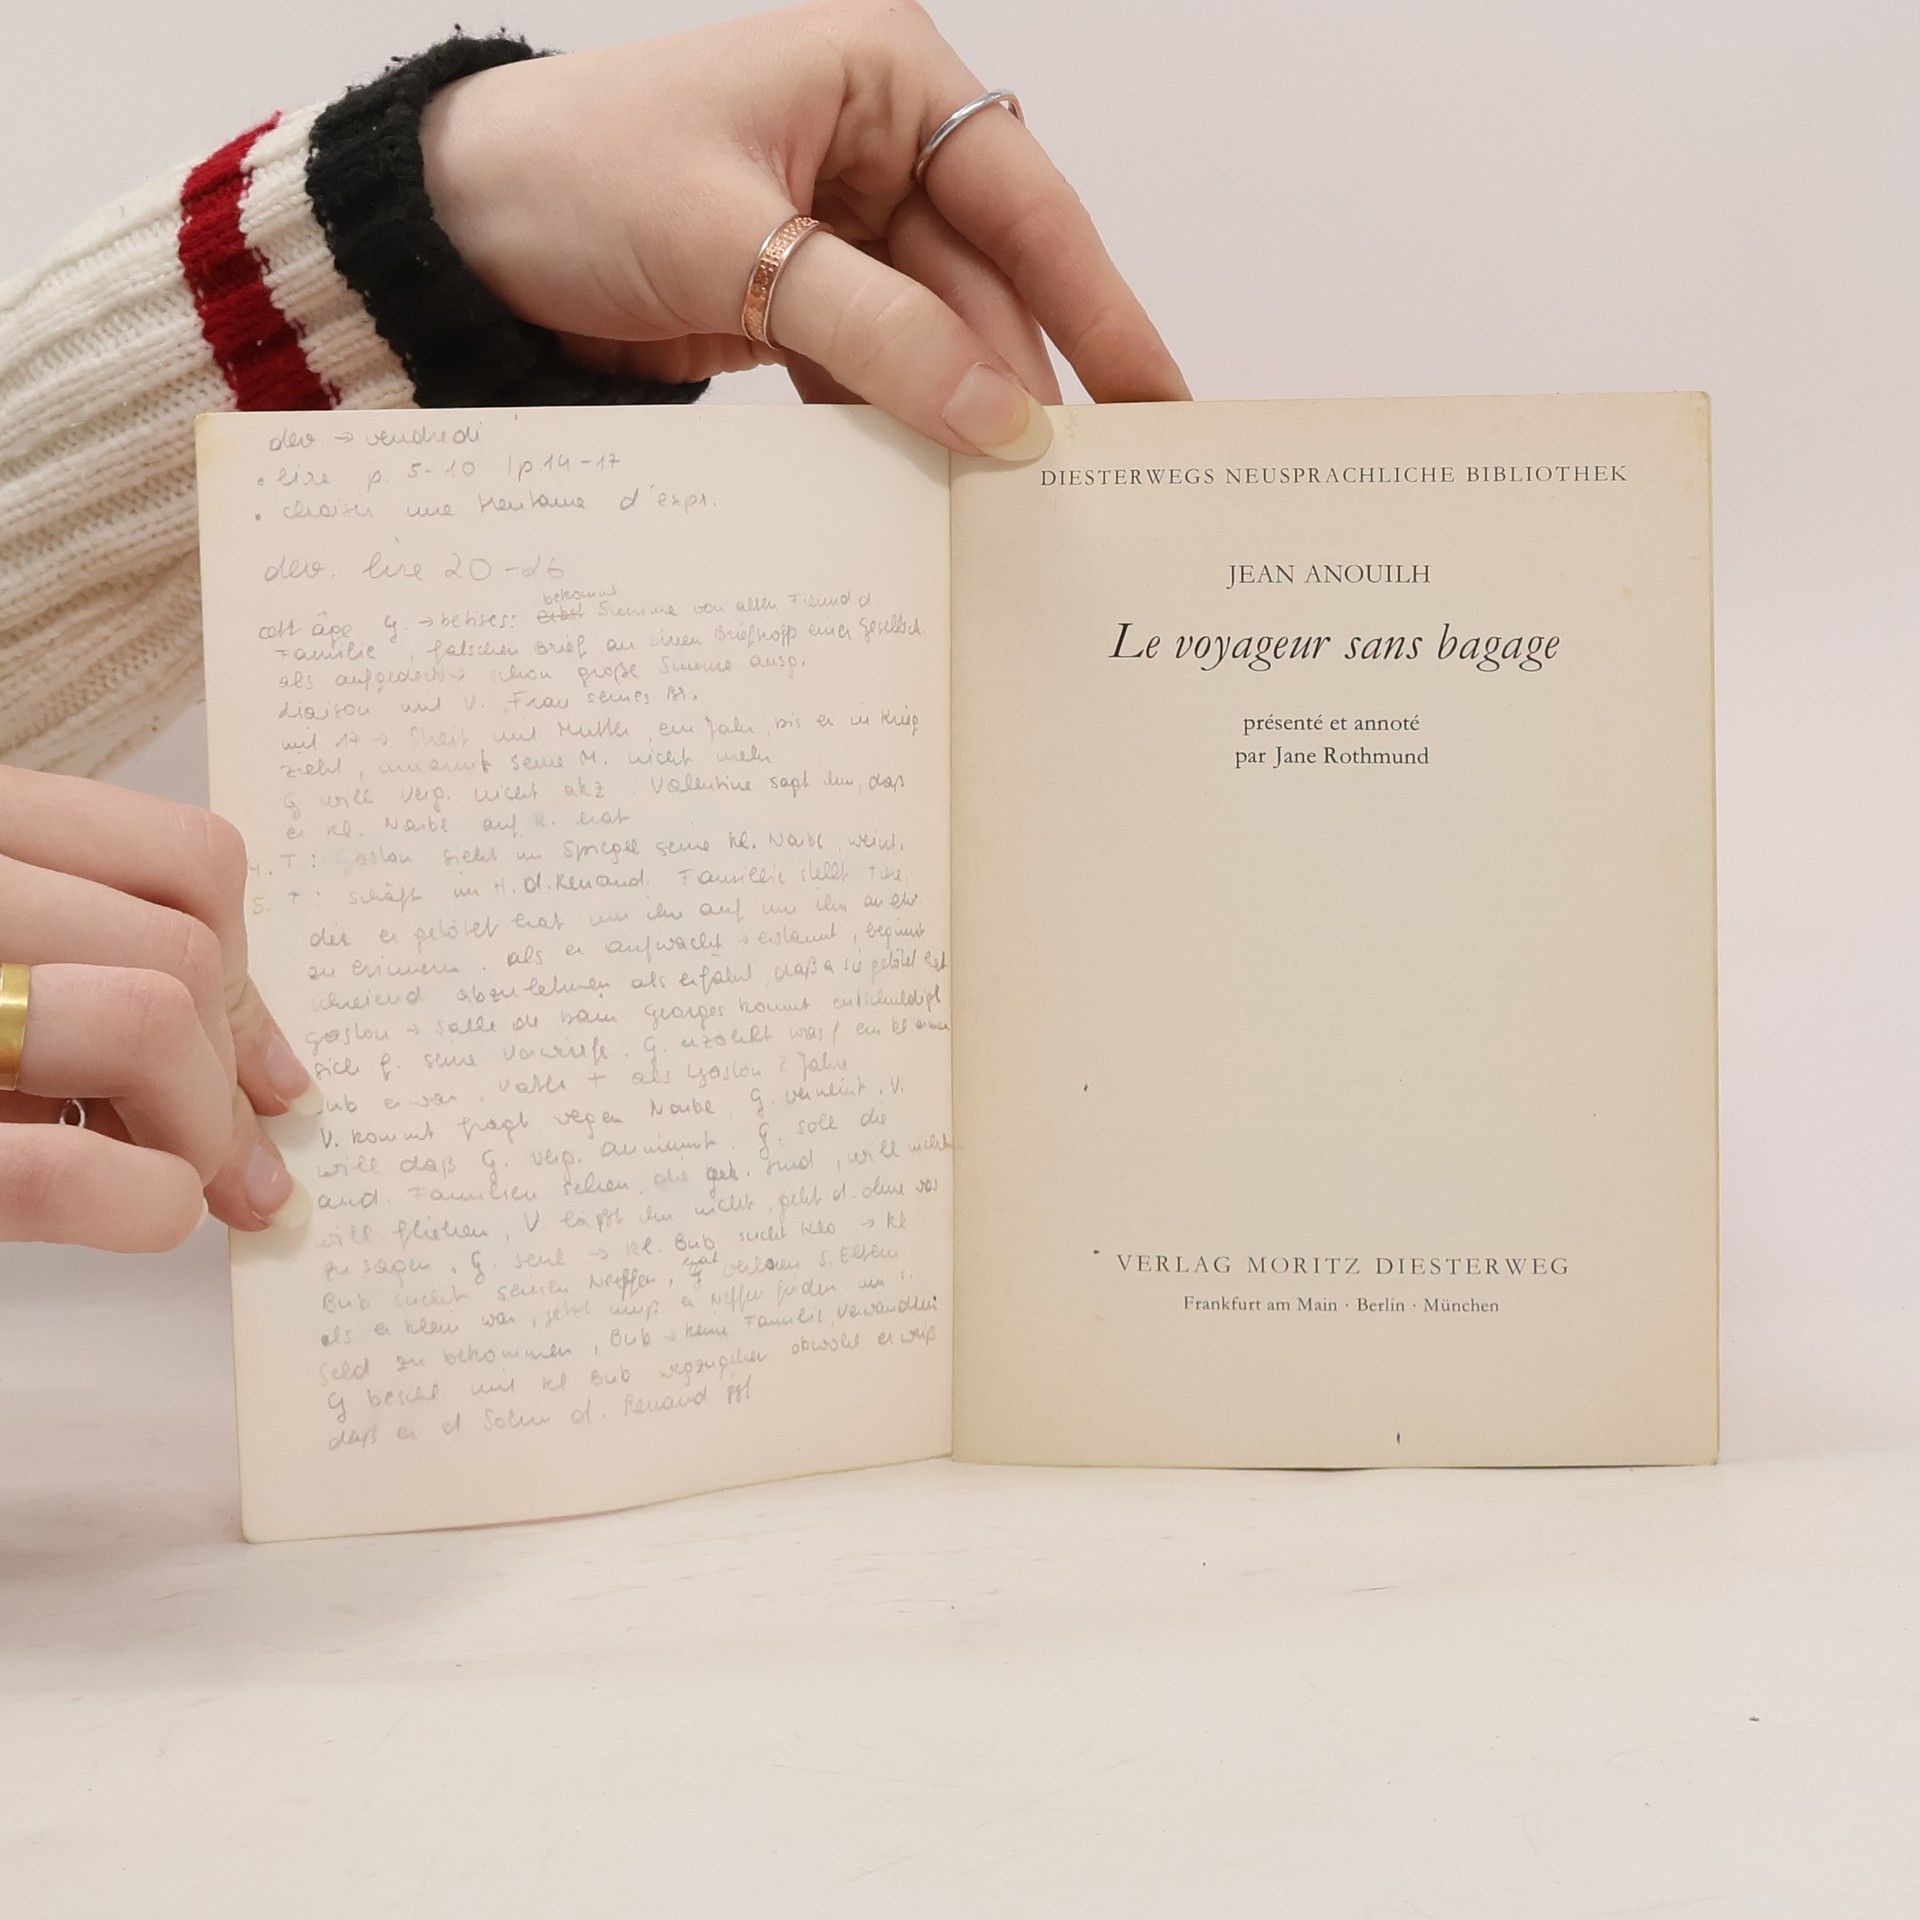 dev. → vendredi
• lire p. 5-10 /p.14-17
• choisir une trentaine d'expr.
dev. lire 20-26
bekommt
G. → betises: erbst Summe von alten Freund d.
Familie, falschen Brief an einen Briefkopf einer Gesellsch.
als aufgedeckt → schon große Summe ausg.
Liaison mit V. Frau seines Br.
mit 17 → Streit mit Mutter, ein Jahr, bis er in Krieg
zieht, umarmt seine M. nicht mehr
G will Verg. nicht akz. Valentine sagt ihm, daß
er kl. Narbe auf R. hat
4. T: Gaston sieht im Spiegel seine kl. Narbe, weint.
5. T: schläft im H. d. Renaud. Familie stellt Tiere,
die er getötet hat um ihn auf um ihn an etw.
zu erinnern. als er aufwacht → erstaunt, beginnt
schreiend abzulehnen als erfährt, daß er sie getötet hat
Gaston → salle de bain Georges kommt entschuldigt
sich f. seine Vorwürfe. G. erzählt was f ein kl. armer
Bub er war, Vater + als Gaston 2 Jahre
V. kommt fragt wegen Narbe, G. verneint. V.
will daß G. Verg. annimmt. G. soll die
and. Familien sehen, die gek. sind, will nicht
will fliehen, V. läßt ihn nicht, geht d. ohne was
zu sagen. G. → kl. Bub sucht Klo → kl
Bub sucht seinen Neffen, hat verloren s. Eltern
als er klein war, jetzt muß er Neffen finden um s.
Geld zu bekommen, Bub → keine Familie, Verwandten
G beschl. mit kl Bub wegzugehen obwohl er weiß
daß er d. Sohn d. Renaud ist
DIESTERWEGS NEUSPRACHLICHE BIBLIOTHEK
JEAN ANOUILH
Le voyageur sans bagage
présenté et annoté
par Jane Rothmund
VERLAG MORITZ DIESTERWEG
Frankfurt am Main · Berlin · München